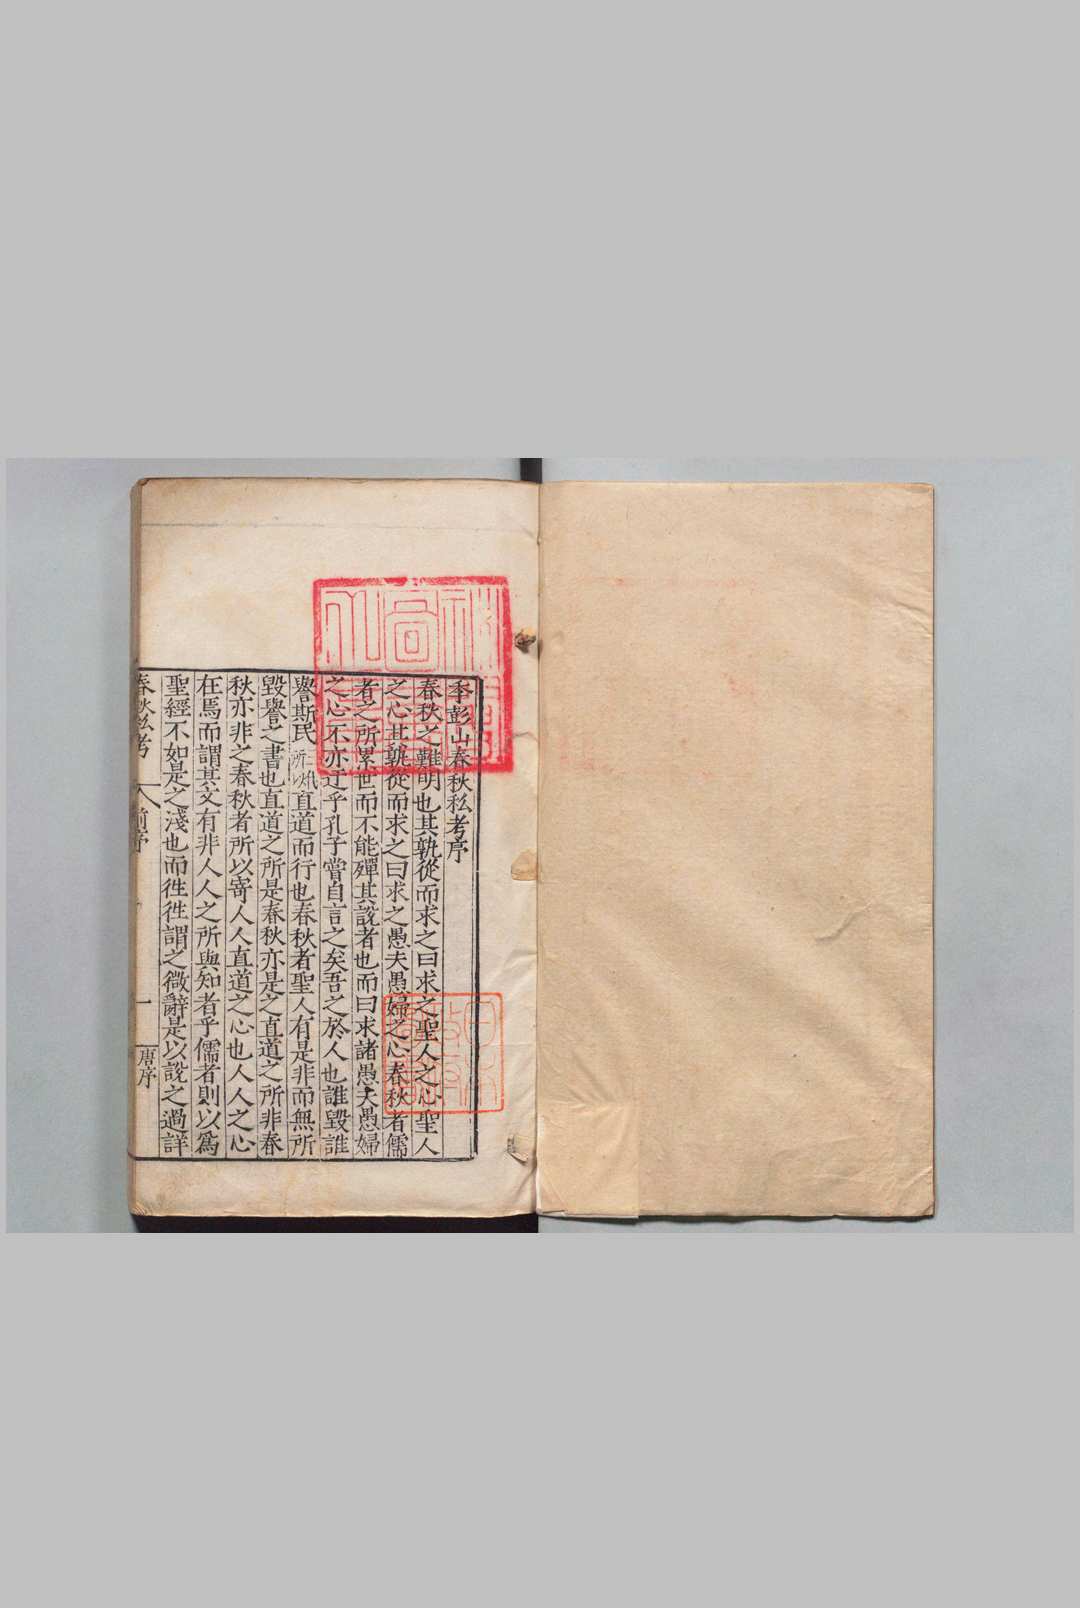 季彭山春秋私考序
春秋之難明也其孰從而求之曰求之聖人之心聖人
之心其孰從而求之曰求之愚夫愚婦之心春秋者儒
者之所累世而不能殫其說者也而曰求諸愚夫愚婦
之心不亦迂乎孔子嘗自言之矣吾之於人也誰毀誰
譽斯民所以直道而行也春秋者聖人有是非而無所
毀譽之書也直道之所是春秋亦是之直道之所非春
秋亦非之春秋者所以寄人人直道之心也人人之心
在焉而謂其文有非人人之所與知者乎儒者則以為
聖經不如是之淺也而徃徃謂之微辭是以說之過詳
春秋私考 前序 一 唐序